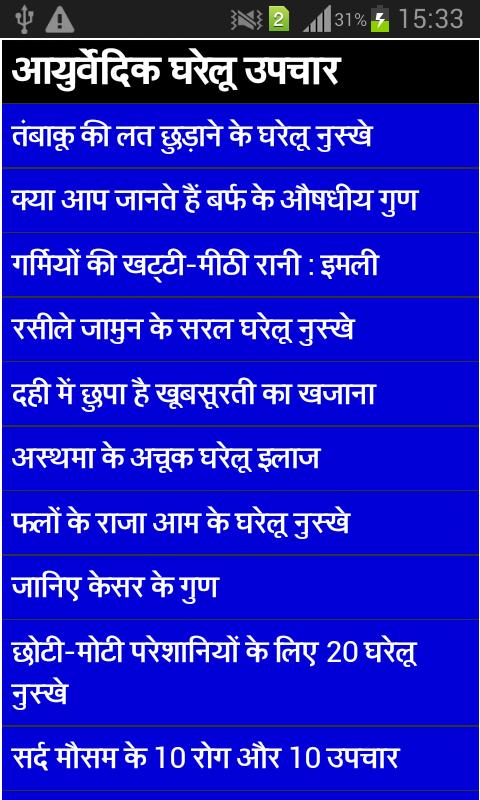 2 31% 15:33
आयुर्वेदिक घरेलू उपचार
तंबाकू की लत छुड़ाने के घरेलू नुस्खे
क्या आप जानते हैं बर्फ के औषधीय गुण
गर्मियों की खट्‍टी-मीठी रानी : इमली
रसीले जामुन के सरल घरेलू नुस्खे
दही में छुपा है खूबसूरती का खजाना
अस्थमा के अचूक घरेलू इलाज
फलों के राजा आम के घरेलू नुस्खे
जानिए केसर के गुण
छोटी-मोटी परेशानियों के लिए 20 घरेलू
नुस्खे
सर्द मौसम के 10 रोग और 10 उपचार